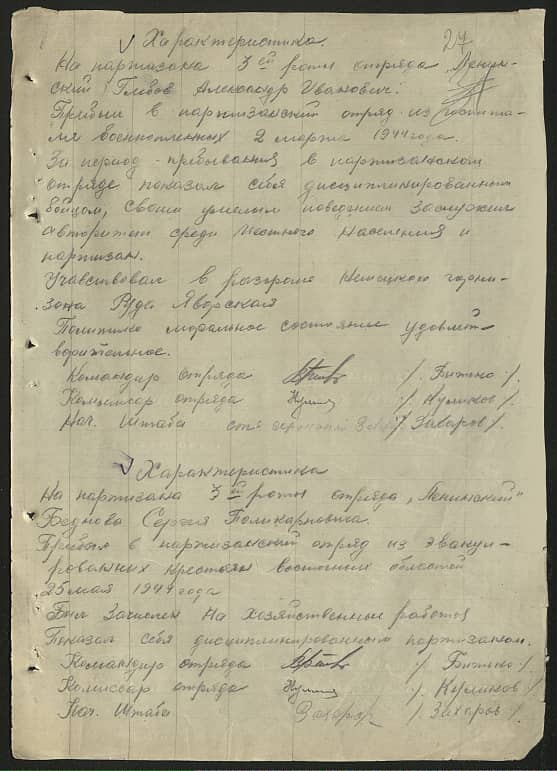 Характеристика. 27
На партизана 3ей роты отряда „Ленин-
ский Глебов Александр Иванович.
Прибыл в партизанский отряд из
военнопленных 2 марта 1944 года.
За период пребывания в партизанском
отряде показал себя дисциплинированным
бойцом, своим умелым поведением заслужил
авторитет среди местного населения и
партизан.
Учавствовал в разгроме немецкого гарни-
зона Руда Яворская
Политико моральное состояние удовлет-
ворительное.
Командир отряда /. Бижко /.
Комиссар отряда /. Куликов /.
Нач. Штаба /. Захаров /.
Характеристика
На партизана 3ей роты отряда „Ленинский"
Беднова Сергея Поликарповича.
Прибыл в партизанский отряд из эвакуи-
рованных крестьян восточных областей
25 мая 1944 года
Был зачислен на хозяйственные работы
Показал себя дисциплинированным партизаном.
Командир отряда /. Бижко /.
Комиссар отряда /. Куликов /.
Нач. Штаба Захаров /. Захаров /.